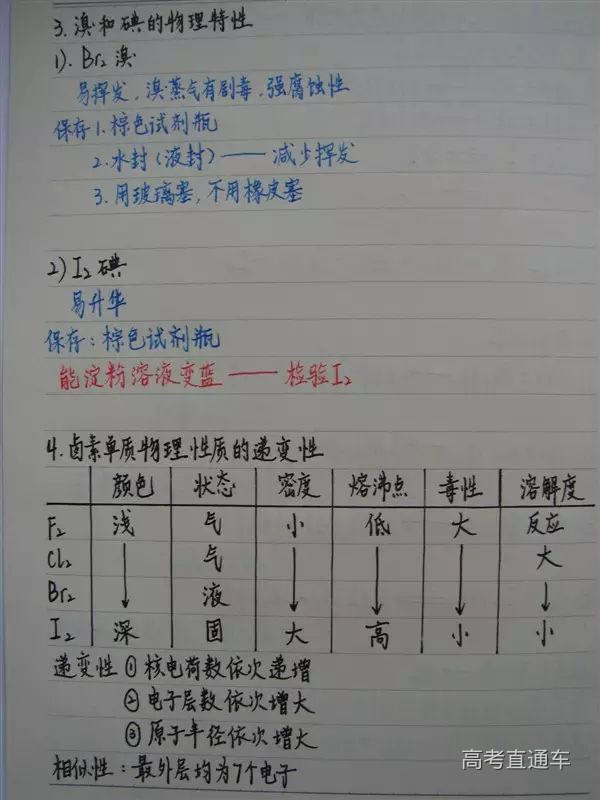 3.溴和碘的物理特性
1).Br₂溴
易挥发,溴蒸气有剧毒,强腐蚀性
保存1.棕色试剂瓶
2.水封(液封)——减少挥发
3.用玻璃塞,不用橡皮塞
2)I₂碘
易升华
保存:棕色试剂瓶
能淀粉溶液变蓝——检验I₂
4.卤素单质物理性质的递变性
颜色 状态 密度 熔沸点 毒性 溶解度
F₂ 浅 气 小 低 大 反应
Cl₂ ↓ 气 ↓ ↓ ↓ 大
Br₂ 液 ↓
I₂ 深 固 大 高 小 小
递变性①核电荷数依次递增
②电子层数依次增大
③原子半径依次增大
相似性:最外层均为7个电子
高考直通车